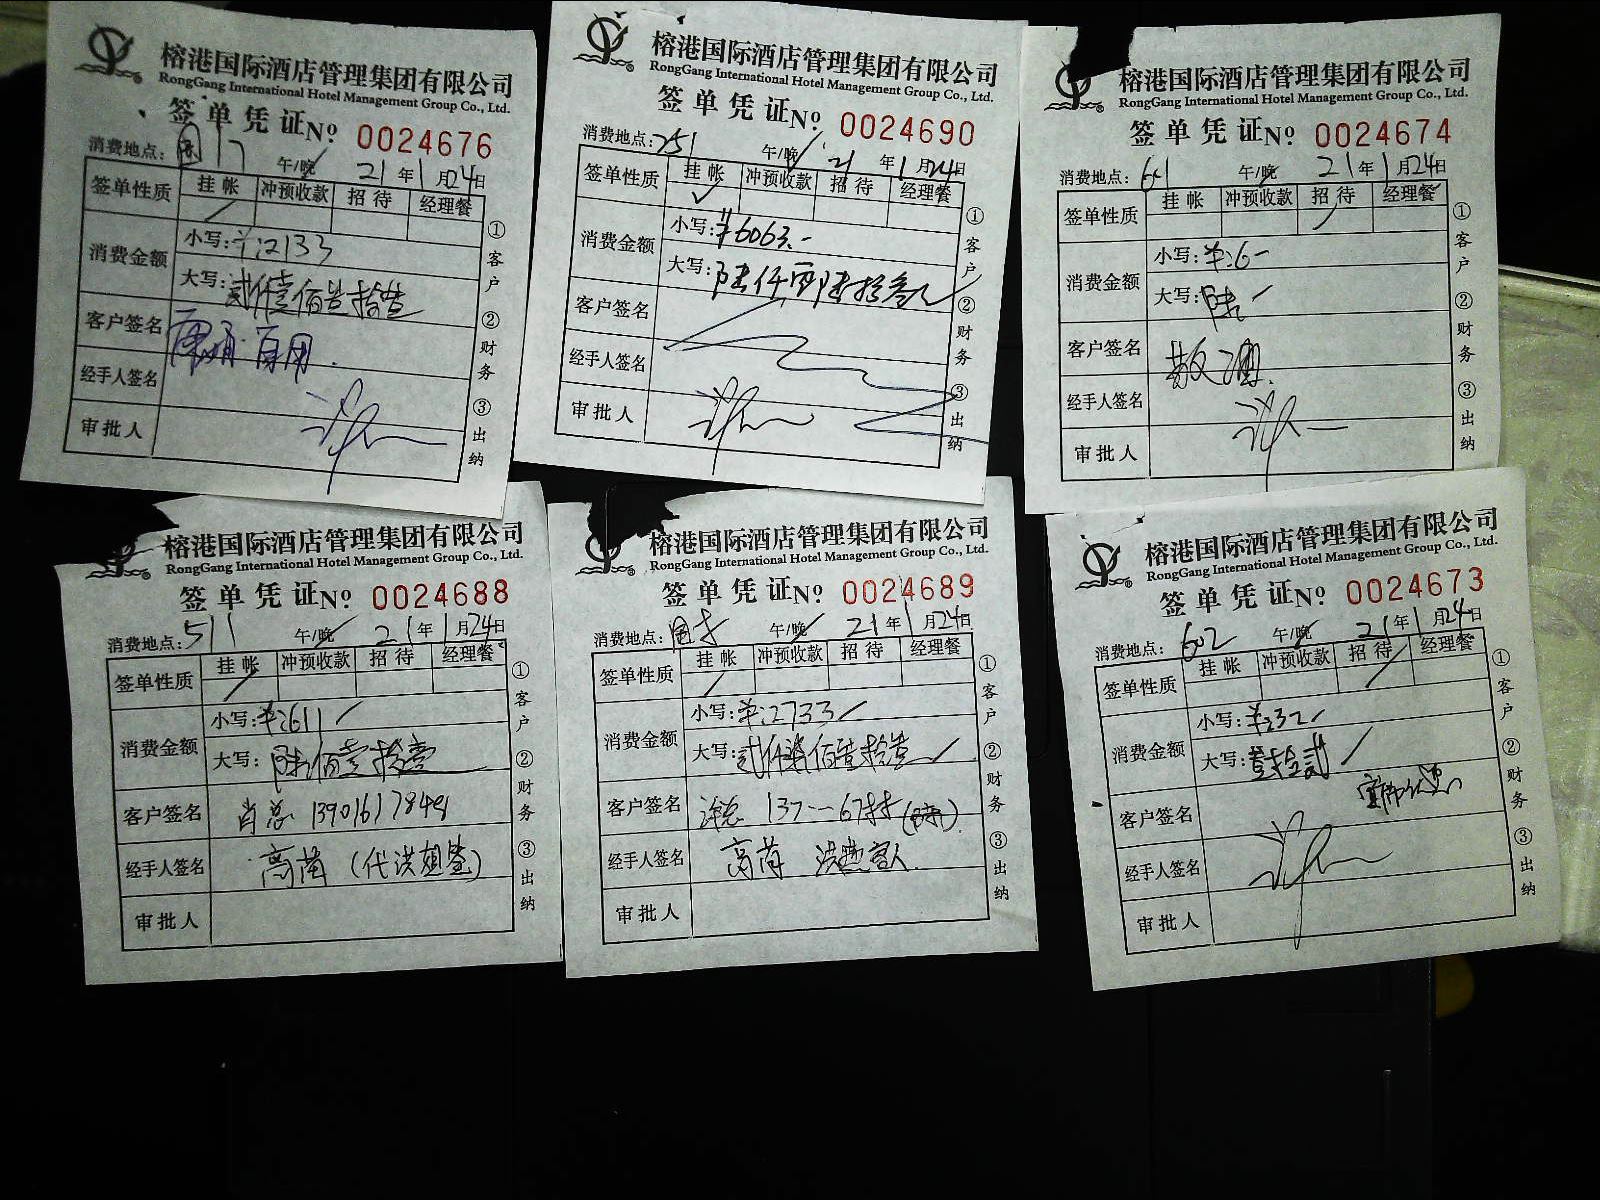 榕港国际酒店管理集团有限公司
RongGang International Hotel Management Group Co., Ltd.
签单凭证 No 0024676
消费地点: 17 午/晚 21年1月24日
签单性质 挂帐 冲预收款 招待 经理餐
消费金额 小写: ¥:2133
大写: 贰仟壹佰叁拾叁
客户签名
经手人签名
审批人
①客户 ②财务 ③出纳
榕港国际酒店管理集团有限公司
RongGang International Hotel Management Group Co., Ltd.
签单凭证 No 0024690
消费地点: 251 午/晚 21年1月24日
签单性质 挂帐 冲预收款 招待 经理餐
消费金额 小写: ¥6063.-
大写: 陆仟零陆拾叁元
客户签名
经手人签名
审批人
①客户 ②财务 ③出纳
榕港国际酒店管理集团有限公司
RongGang International Hotel Management Group Co., Ltd.
签单凭证 No 0024674
消费地点: 601 午/晚 21年1月24日
签单性质 挂帐 冲预收款 招待 经理餐
消费金额 小写: ¥:6-
大写: 陆
客户签名 散酒.
经手人签名
审批人
①客户 ②财务 ③出纳
榕港国际酒店管理集团有限公司
RongGang International Hotel Management Group Co., Ltd.
签单凭证 No 0024688
消费地点: 511 午/晚 21年1月24日
签单性质 挂帐 冲预收款 招待 经理餐
消费金额 小写: ¥:611
大写: 陆佰壹拾壹
客户签名 肖总
经手人签名 高苒 (代洪姐签)
审批人
①客户 ②财务 ③出纳
榕港国际酒店管理集团有限公司
RongGang International Hotel Management Group Co., Ltd.
签单凭证 No 0024689
消费地点: 午/晚 21年1月24日
签单性质 挂帐 冲预收款 招待 经理餐
消费金额 小写: ¥:2733
大写: 贰仟柒佰叁拾叁
客户签名
经手人签名 高苒 洪姐客人.
审批人
①客户 ②财务 ③出纳
榕港国际酒店管理集团有限公司
RongGang International Hotel Management Group Co., Ltd.
签单凭证 No 0024673
消费地点: 602 午/晚 21年1月24日
签单性质 挂帐 冲预收款 招待 经理餐
消费金额 小写: ¥:32
大写: 叁拾贰
客户签名
经手人签名
审批人
①客户 ②财务 ③出纳